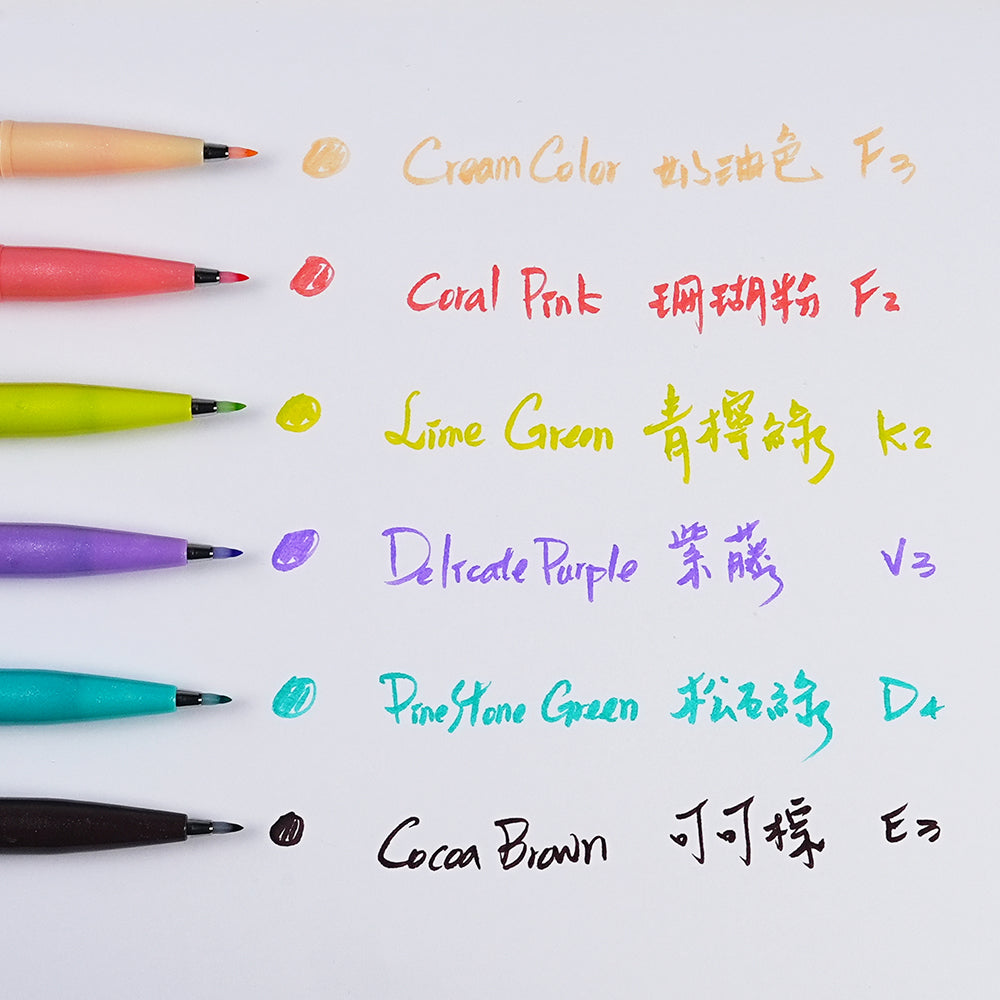 Cream Color 奶油色 F3
Coral Pink 珊瑚粉 F2
Lime Green 青檸綠 K2
Delicate Purple 紫藤 V3
PineStone Green 松石綠 D4
Cocoa Brown 可可棕 E3